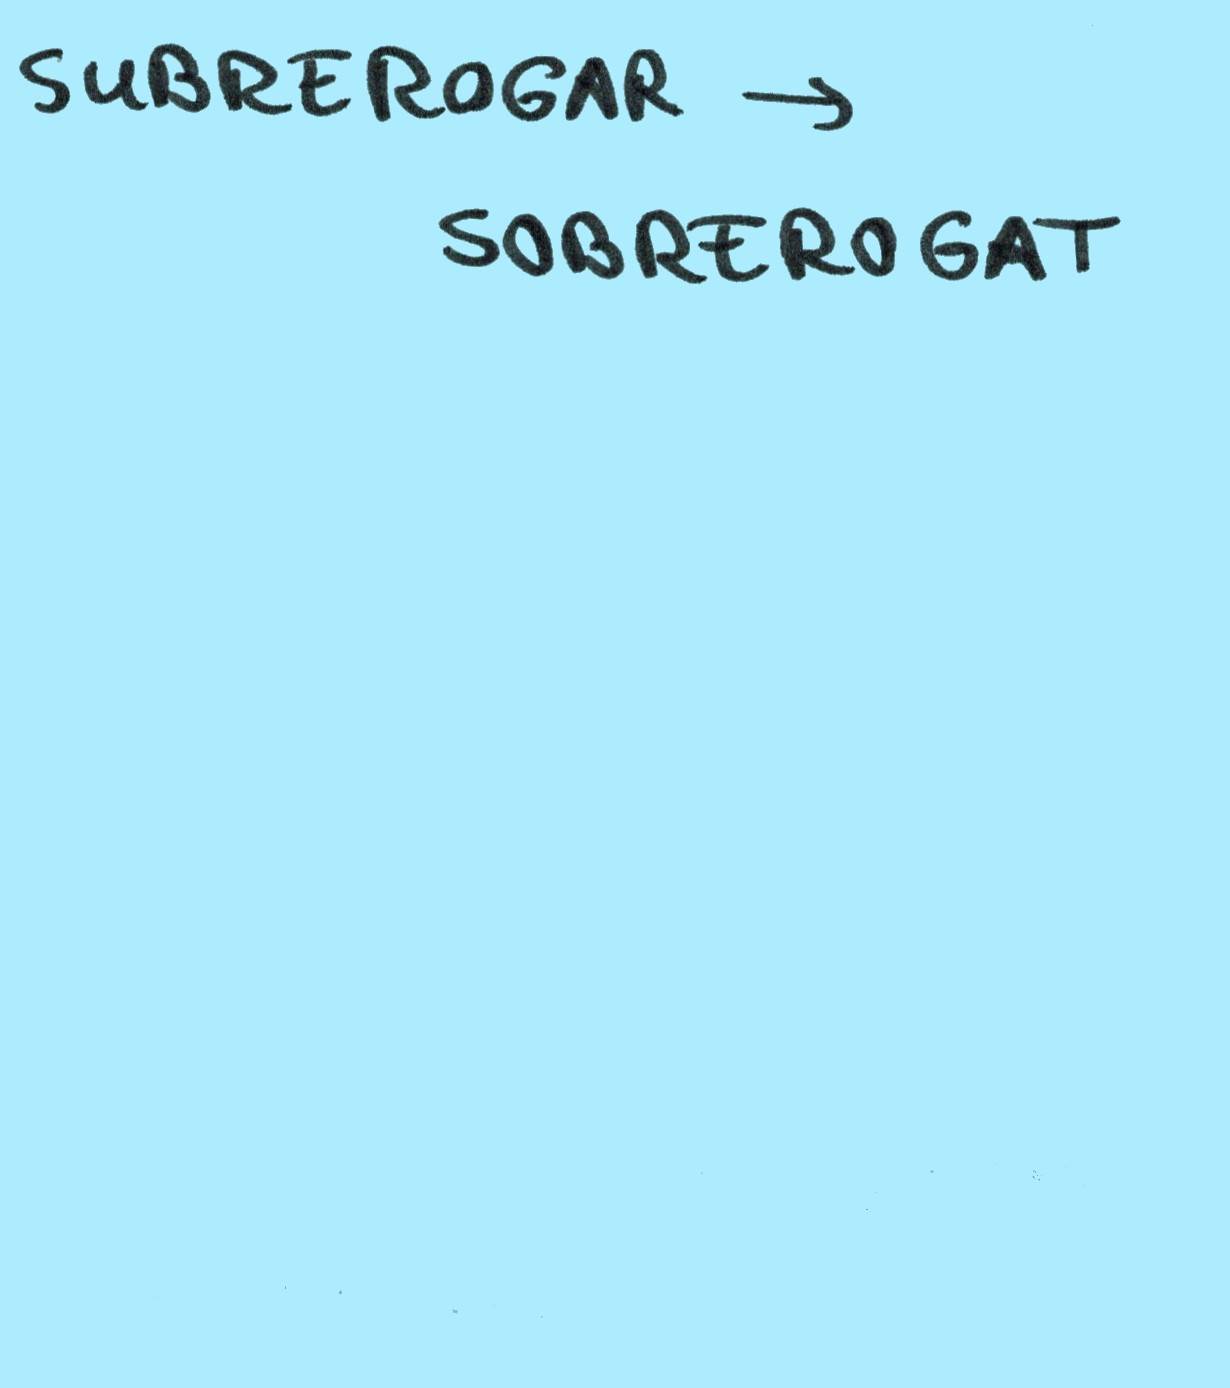 SUBREROGAR →
SOBREROGAT